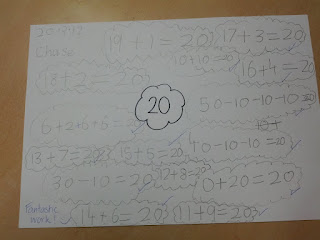 Chase
19 + 1 = 20
17 + 3 = 20
10 + 10 = 20
18 + 2 = 20
16 + 4 = 20
20
50 - 10 - 10 - 10
13 + 7 = 20
40 - 10 - 10 = 20
30 - 10 = 20
12 + 8 = 20
0 + 20 = 20
Fantastic
work!
14 + 6 = 20
11 + 9 = 20